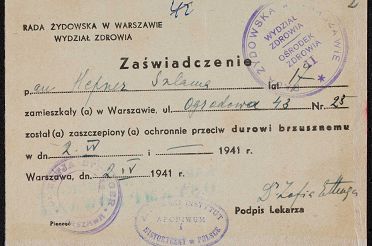 42
2
RADA ŻYDOWSKA W WARSZAWIE
WYDZIAŁ ZDROWIA
RADA ŻYDOWSKA W WARSZAWIE
WYDZIAŁ
ZDROWIA
OŚRODEK
ZDROWIA
Zaświadczenie
p. Hefner Szlama lat 17
zamieszkały (a) w Warszawie, ul. Ogrodowa 43 Nr 25
został (a) zaszczepiony (a) ochronnie przeciw durowi brzusznemu
w dn. 2. IV i — 1941 r.
Warszawa, dn. 2 IV 1941 r.
Dr Zofia
Pieczęć
Podpis Lekarza
INSTYTUT
ARCHIWUM
HISTORYCZNY W POLSCE